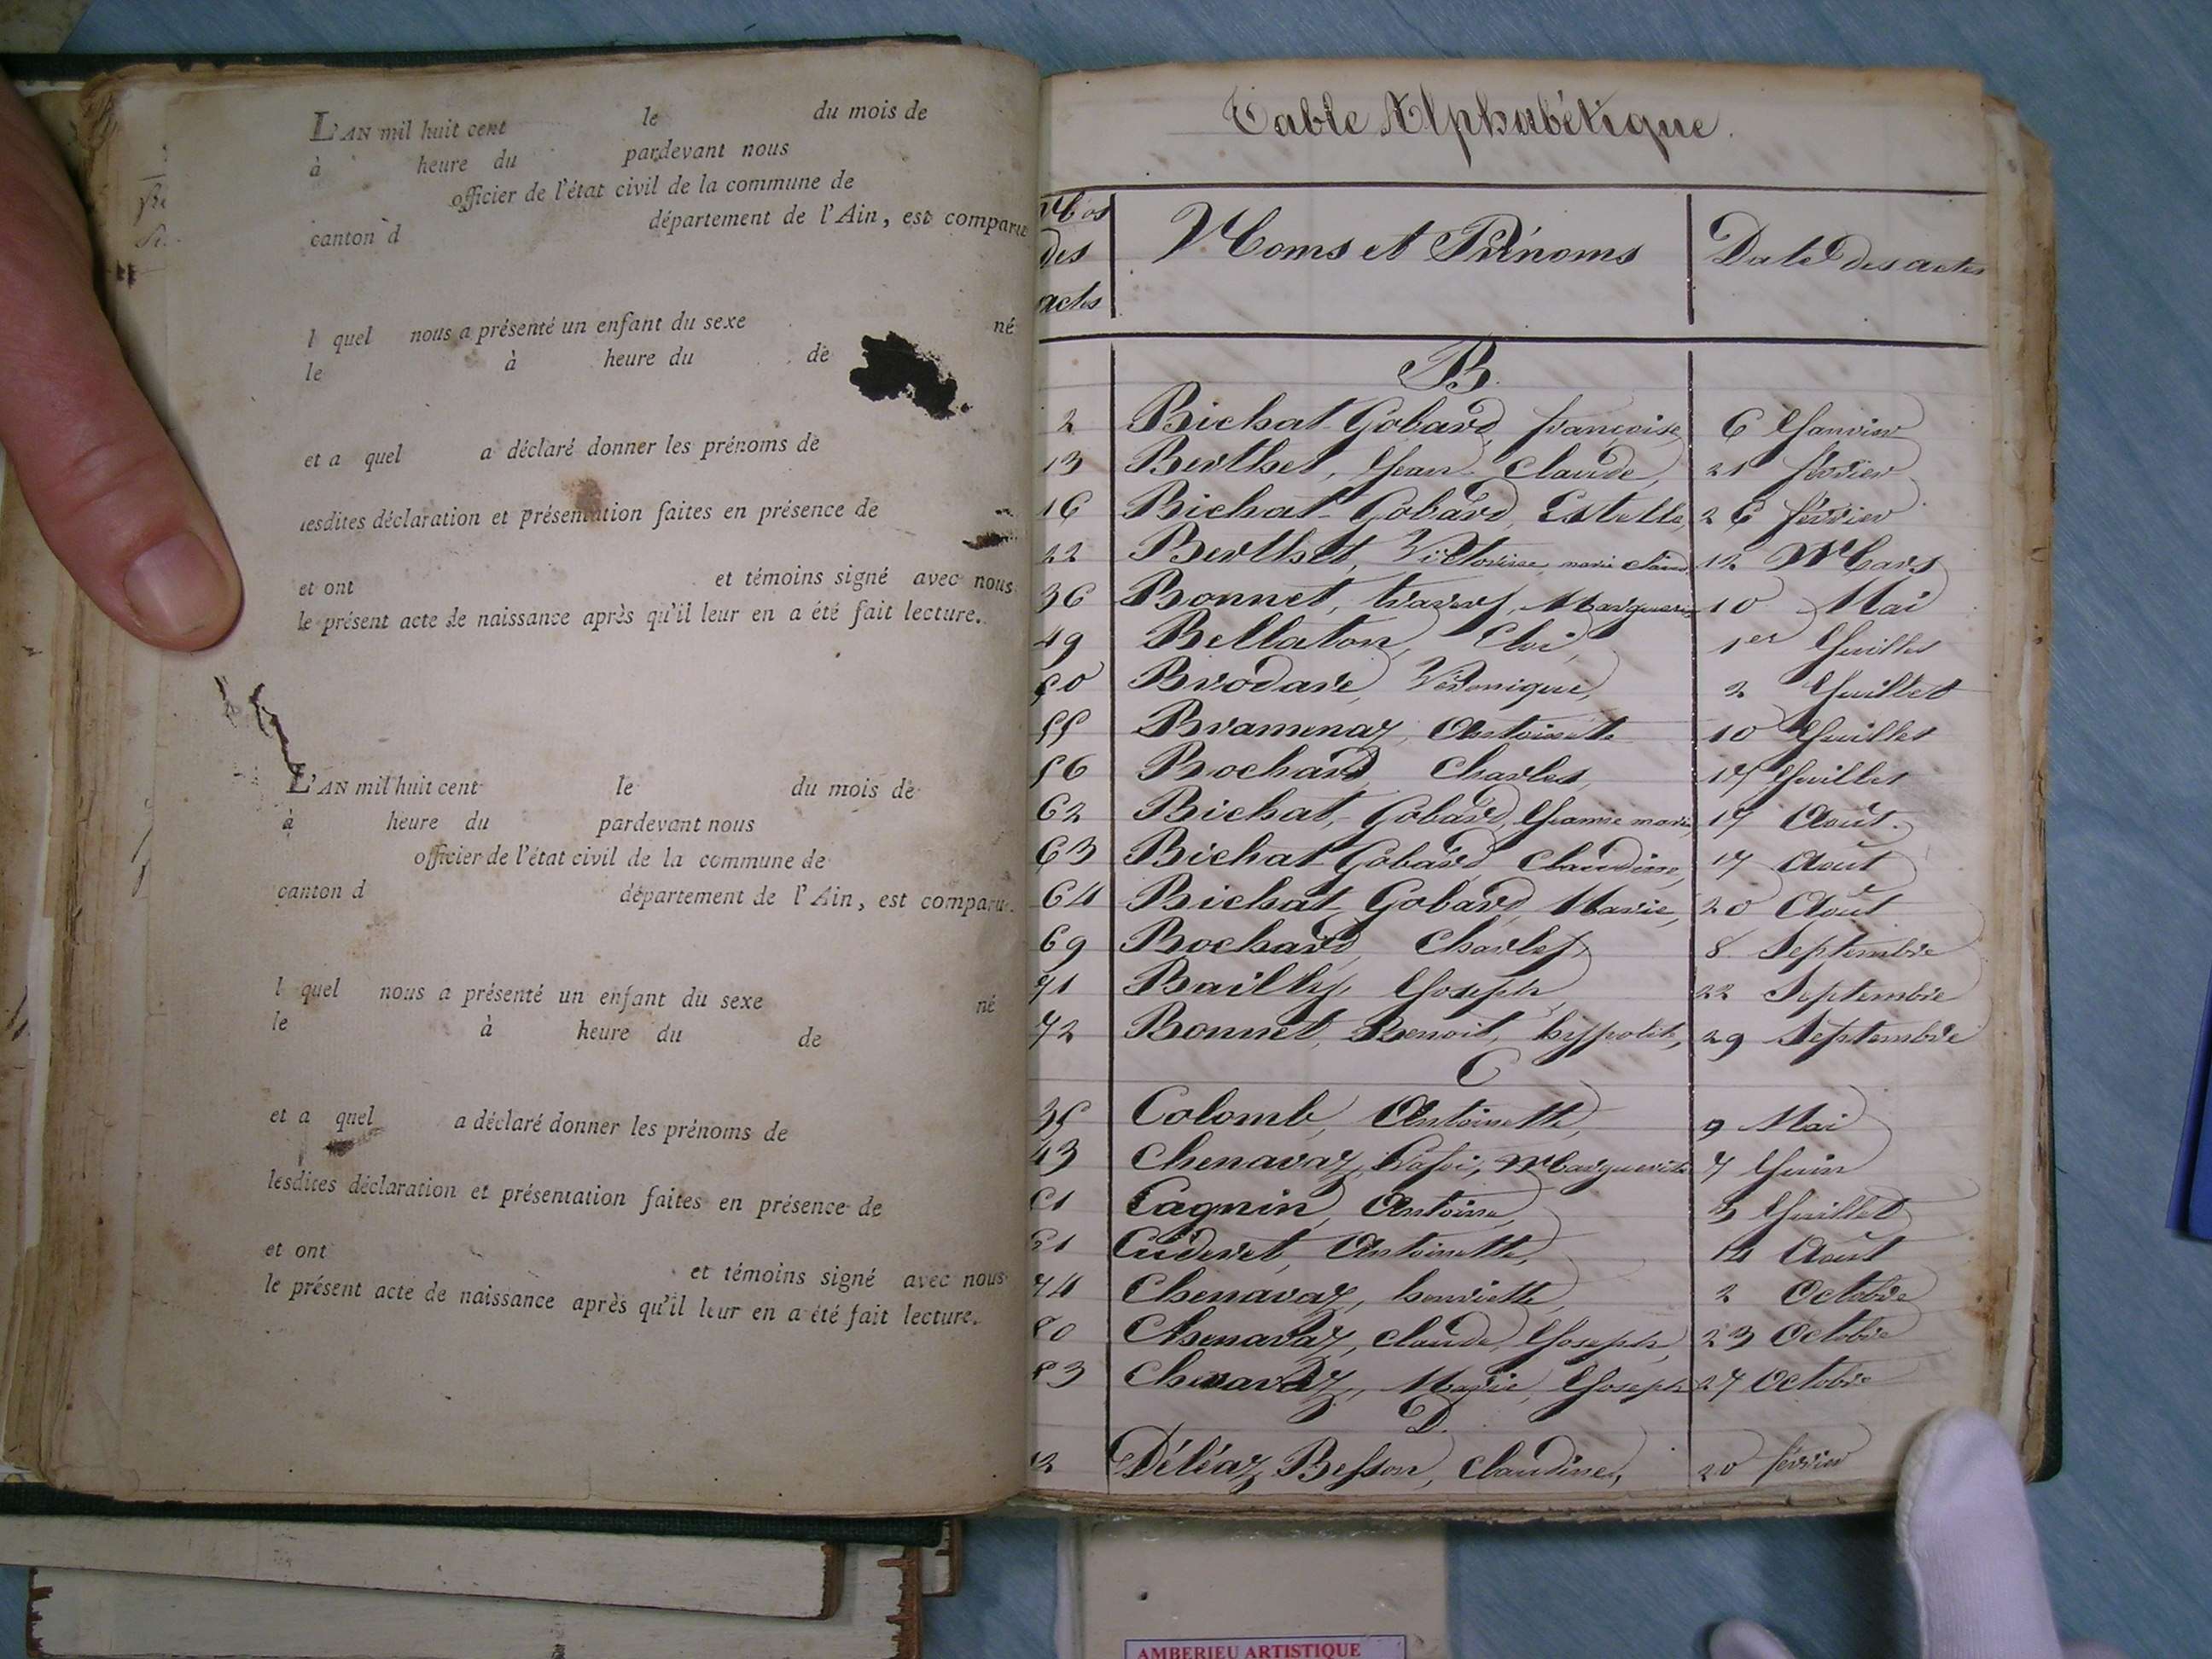 L'AN mil huit cent le du mois de
à heure du pardevant nous
officier de l'état civil de la commune de
canton d département de l'Ain, est comparu
l quel nous a présenté un enfant du sexe né
le à heure du de
et a quel a déclaré donner les prénoms de
lesdites déclaration et présentation faites en présence de
et ont et témoins signé avec nous
le présent acte de naissance après qu'il leur en a été fait lecture.
L'AN mil huit cent le du mois de
à heure du pardevant nous
officier de l'état civil de la commune de
canton d département de l'Ain, est comparu
l quel nous a présenté un enfant du sexe né
le à heure du de
et a quel a déclaré donner les prénoms de
lesdites déclaration et présentation faites en présence de
et ont et témoins signé avec nous
le présent acte de naissance après qu'il leur en a été fait lecture.
Table Alphabétique.
Nos des actes Noms et Prénoms Date des actes
B.
2 Bichat Gobard, françoise 6 Janvier
13 Berthet, Jean Claude, 21 février
16 Bichat Gobard, Estelle, 26 février
22 Berthet, Victorine, marie 12 Mars
36 Bonnet, Marguerite 10 Mai
49 Bellaton, Eloi, 1er Juillet
50 Brodare, Véronique, 2 Juillet
55 Bramenaz, Antoinette 10 Juillet
56 Bochard Charles, 17 Juillet
62 Bichat, Gobard, Jeannie marie, 17 Août.
63 Bichat Gobard Claudine, 17 Août
64 Bichat Gobard, Marie, 20 Août
69 Bochard, Charles, 8 Septembre
71 Bailly, Joseph, 22 Septembre
72 Bonnet, Benoit, hippolite, 29 Septembre
C
35 Colomb, Antoinette, 9 Mai
43 Chenavaz, Marguerite 7 Juin
51 Cagnin, Antoine, 3 Juillet
61 Cuderet, Antoinette, 14 Août
74 Chenavaz, henriette, 2 Octobre
80 Chenavaz, Claude, Joseph, 23 Octobre
83 Chenavaz, Marie Joseph 27 Octobre
D.
12 Déléaz Besson, Claudine, 20 février
AMBERIEU ARTISTIQUE